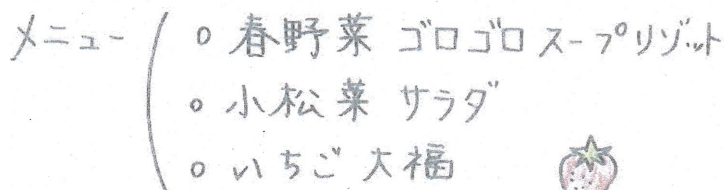 メニュー ○ 春野菜 ゴロゴロ スープリゾット
○ 小松菜 サラダ
○ いちご 大福